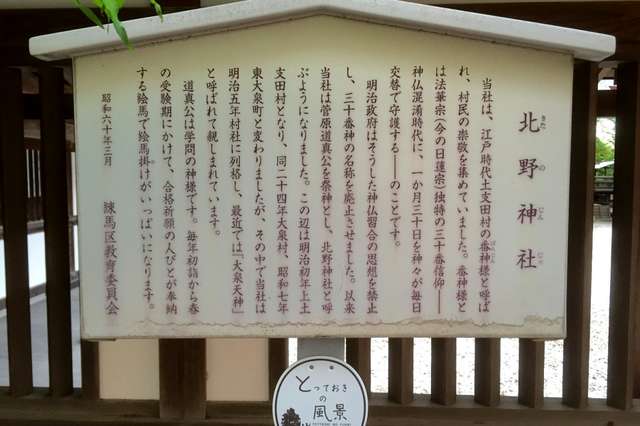 北野神社
きたのじんじゃ
当社は、江戸時代土支田村の番神様と呼ば
ばんじん
れ、村民の崇敬を集めていました。番神様と
は法華宗(今の日蓮宗)独特の三十番信仰――
神仏混淆時代に、一か月三十日を神々が毎日
交替で守護する――のことです。
明治政府はそうした神仏習合の思想を禁止
し、三十番神の名称を廃止させました。以来
当社は菅原道真公を祭神とし、北野神社と呼
ぶようになりました。この辺は明治初年上土
支田村となり、同二十四年大泉村、昭和七年
東大泉町と変わりましたが、その中で当社は
明治五年村社に列格し、最近では『大泉天神』
と呼ばれて親しまれています。
道真公は学問の神様です。毎年初詣から春
の受験期にかけて、合格祈願の人びとが奉納
する絵馬で絵馬掛けがいっぱいになります。
昭和六十年三月
練馬区教育委員会
とっておき
の
風景